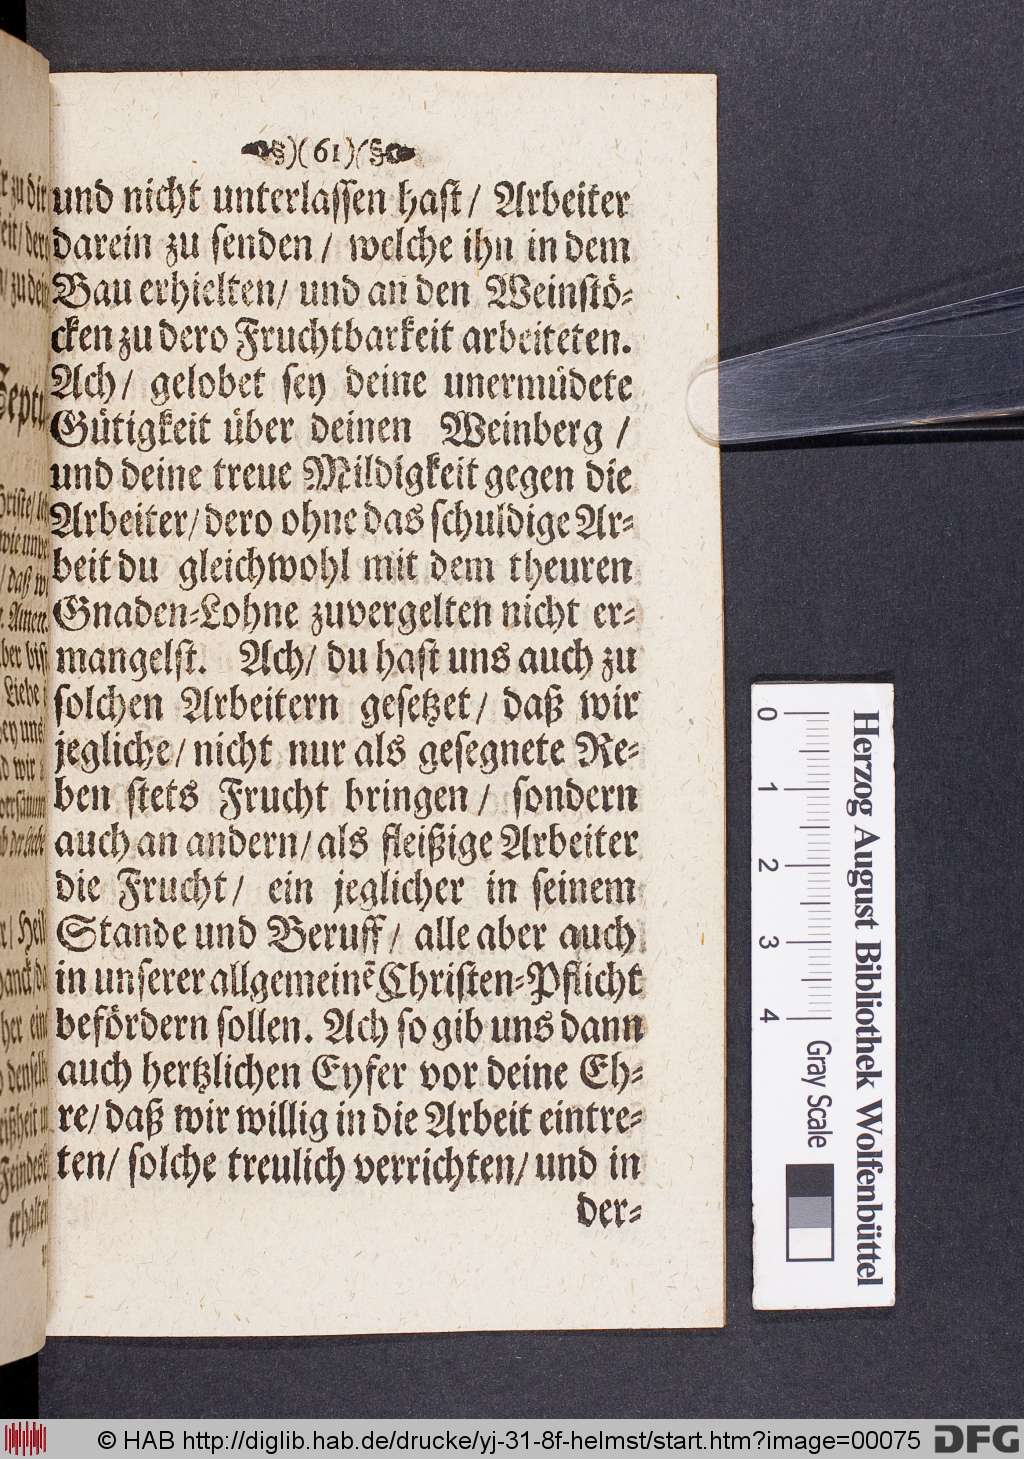 §)(61)(§
und nicht unterlassen hast/ Arbeiter
darein zu senden/ welche ihn in dem
Bau erhielten/ und an den Weinstö-
cken zu dero Fruchtbarkeit arbeiteten.
Ach/ gelobet sey deine unermüdete
Gütigkeit über deinen Weinberg/
und deine treue Mildigkeit gegen die
Arbeiter/ dero ohne das schuldige Ar-
beit du gleichwohl mit dem theuren
Gnaden-Lohne zuvergelten nicht er-
mangelst. Ach/ du hast uns auch zu
solchen Arbeitern gesetzet/ daß wir
jegliche/ nicht nur als gesegnete Re-
ben stets Frucht bringen/ sondern
auch an andern/ als fleißige Arbeiter
die Frucht/ ein jeglicher in seinem
Stande und Beruff/ alle aber auch
in unserer allgemeinē Christen-Pflicht
befördern sollen. Ach so gib uns dann
auch hertzlichen Eyfer vor deine Eh-
re/ daß wir willig in die Arbeit eintre-
ten/ solche treulich verrichten/ und in
der-
Herzog August Bibliothek Wolfenbüttel
0 1 2 3 4
Gray Scale
© HAB http://diglib.hab.de/drucke/yj-31-8f-helmst/start.htm?image=00075
DFG